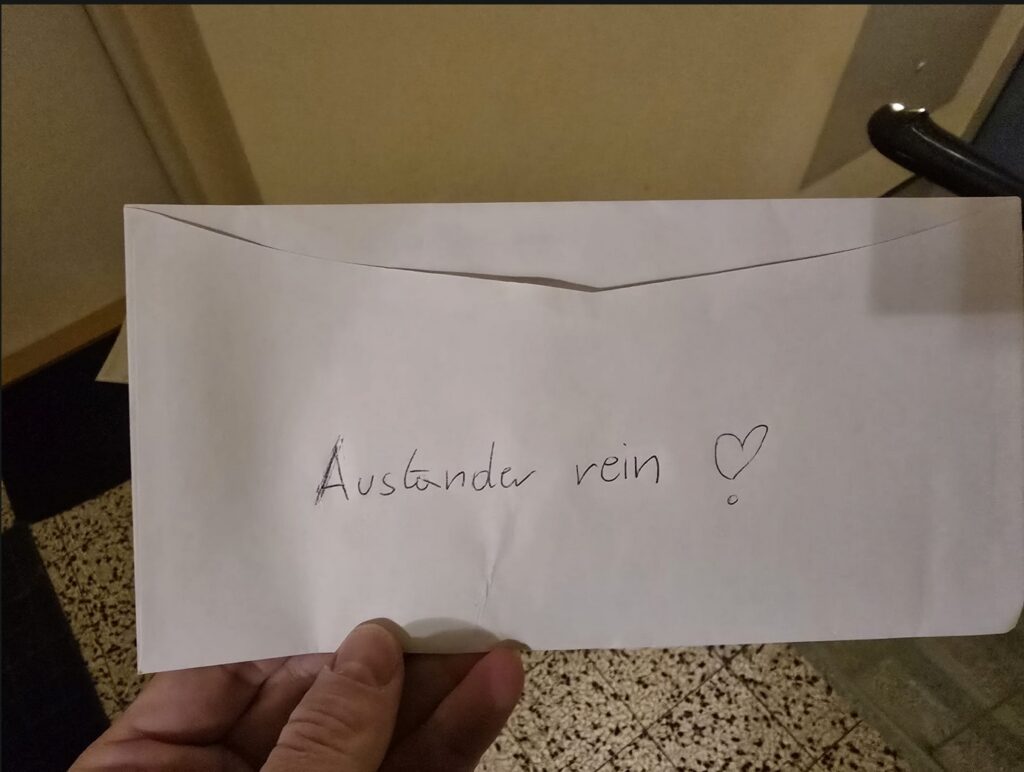 Auslander rein ❣